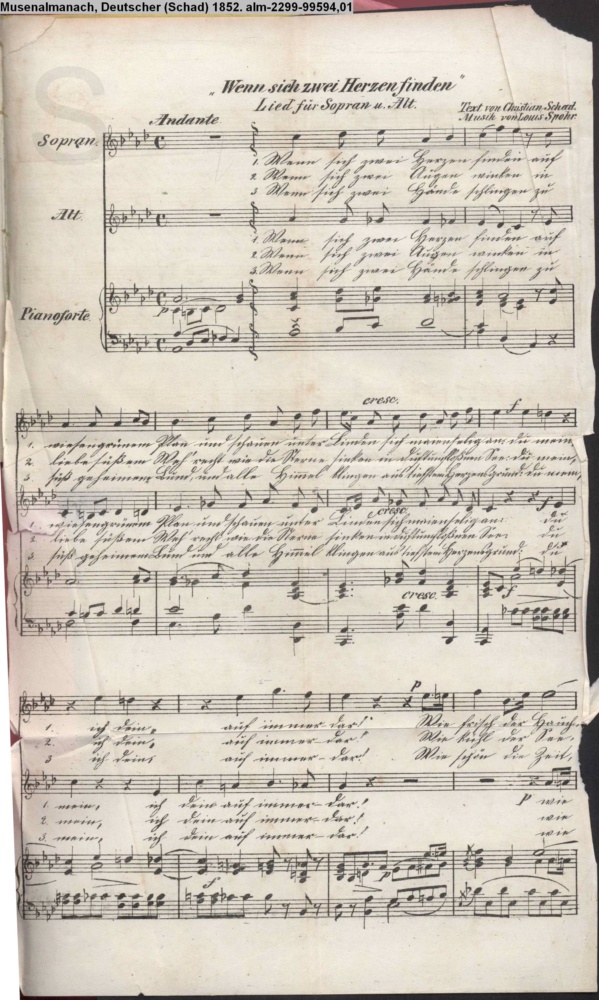 Musenalmanach, Deutscher (Schad) 1852. alm-2299-99594,01
„Wenn sich zwei Herzen finden"
Lied für Sopran u. Alt.
Text von Christian Schad.
Musik von Louis Spohr.
Andante
Sopran.
1. Wenn sich zwei Herzen finden auf
2. Wenn sich zwei Augen winken in
3. Wenn sich zwei Hände schlingen zu
Alt.
1. Wenn sich zwei Herzen finden auf
2. Wenn sich zwei Augen winken in
3. Wenn sich zwei Hände schlingen zu
Pianoforte.
p
cresc.
f
1. wiesengrünem Plan und schauen unter Linden sich maienselig an: du mein
2. liebe süßem Weh' recht wie die Sterne sinken in See: du mein,
3. süß geheimem Bund, und alle Himmel klingen aus tiefstem Herzensgrund: du mein,
cresc.
f
1. wiesengrünem Plan und schauen unter Linden sich maienselig an: du
2. liebe süßem Weh recht wie die Sterne sinken in See: du
3. süß geheimem Bund und alle Himmel klingen aus tiefstem Herzensgrund: du
cresc.
f
p
1. ich dein, auf immer dar! Wie frisch der Hauch,
2. ich dein, auf immer dar! Wie kühl der See,
3. ich dein, auf immer dar! Wie schön die Zeit,
p
1. mein, ich dein auf immer dar! wie
2. mein, ich dein auf immer dar! wie
3. mein, ich dein auf immer dar! wie
f
p